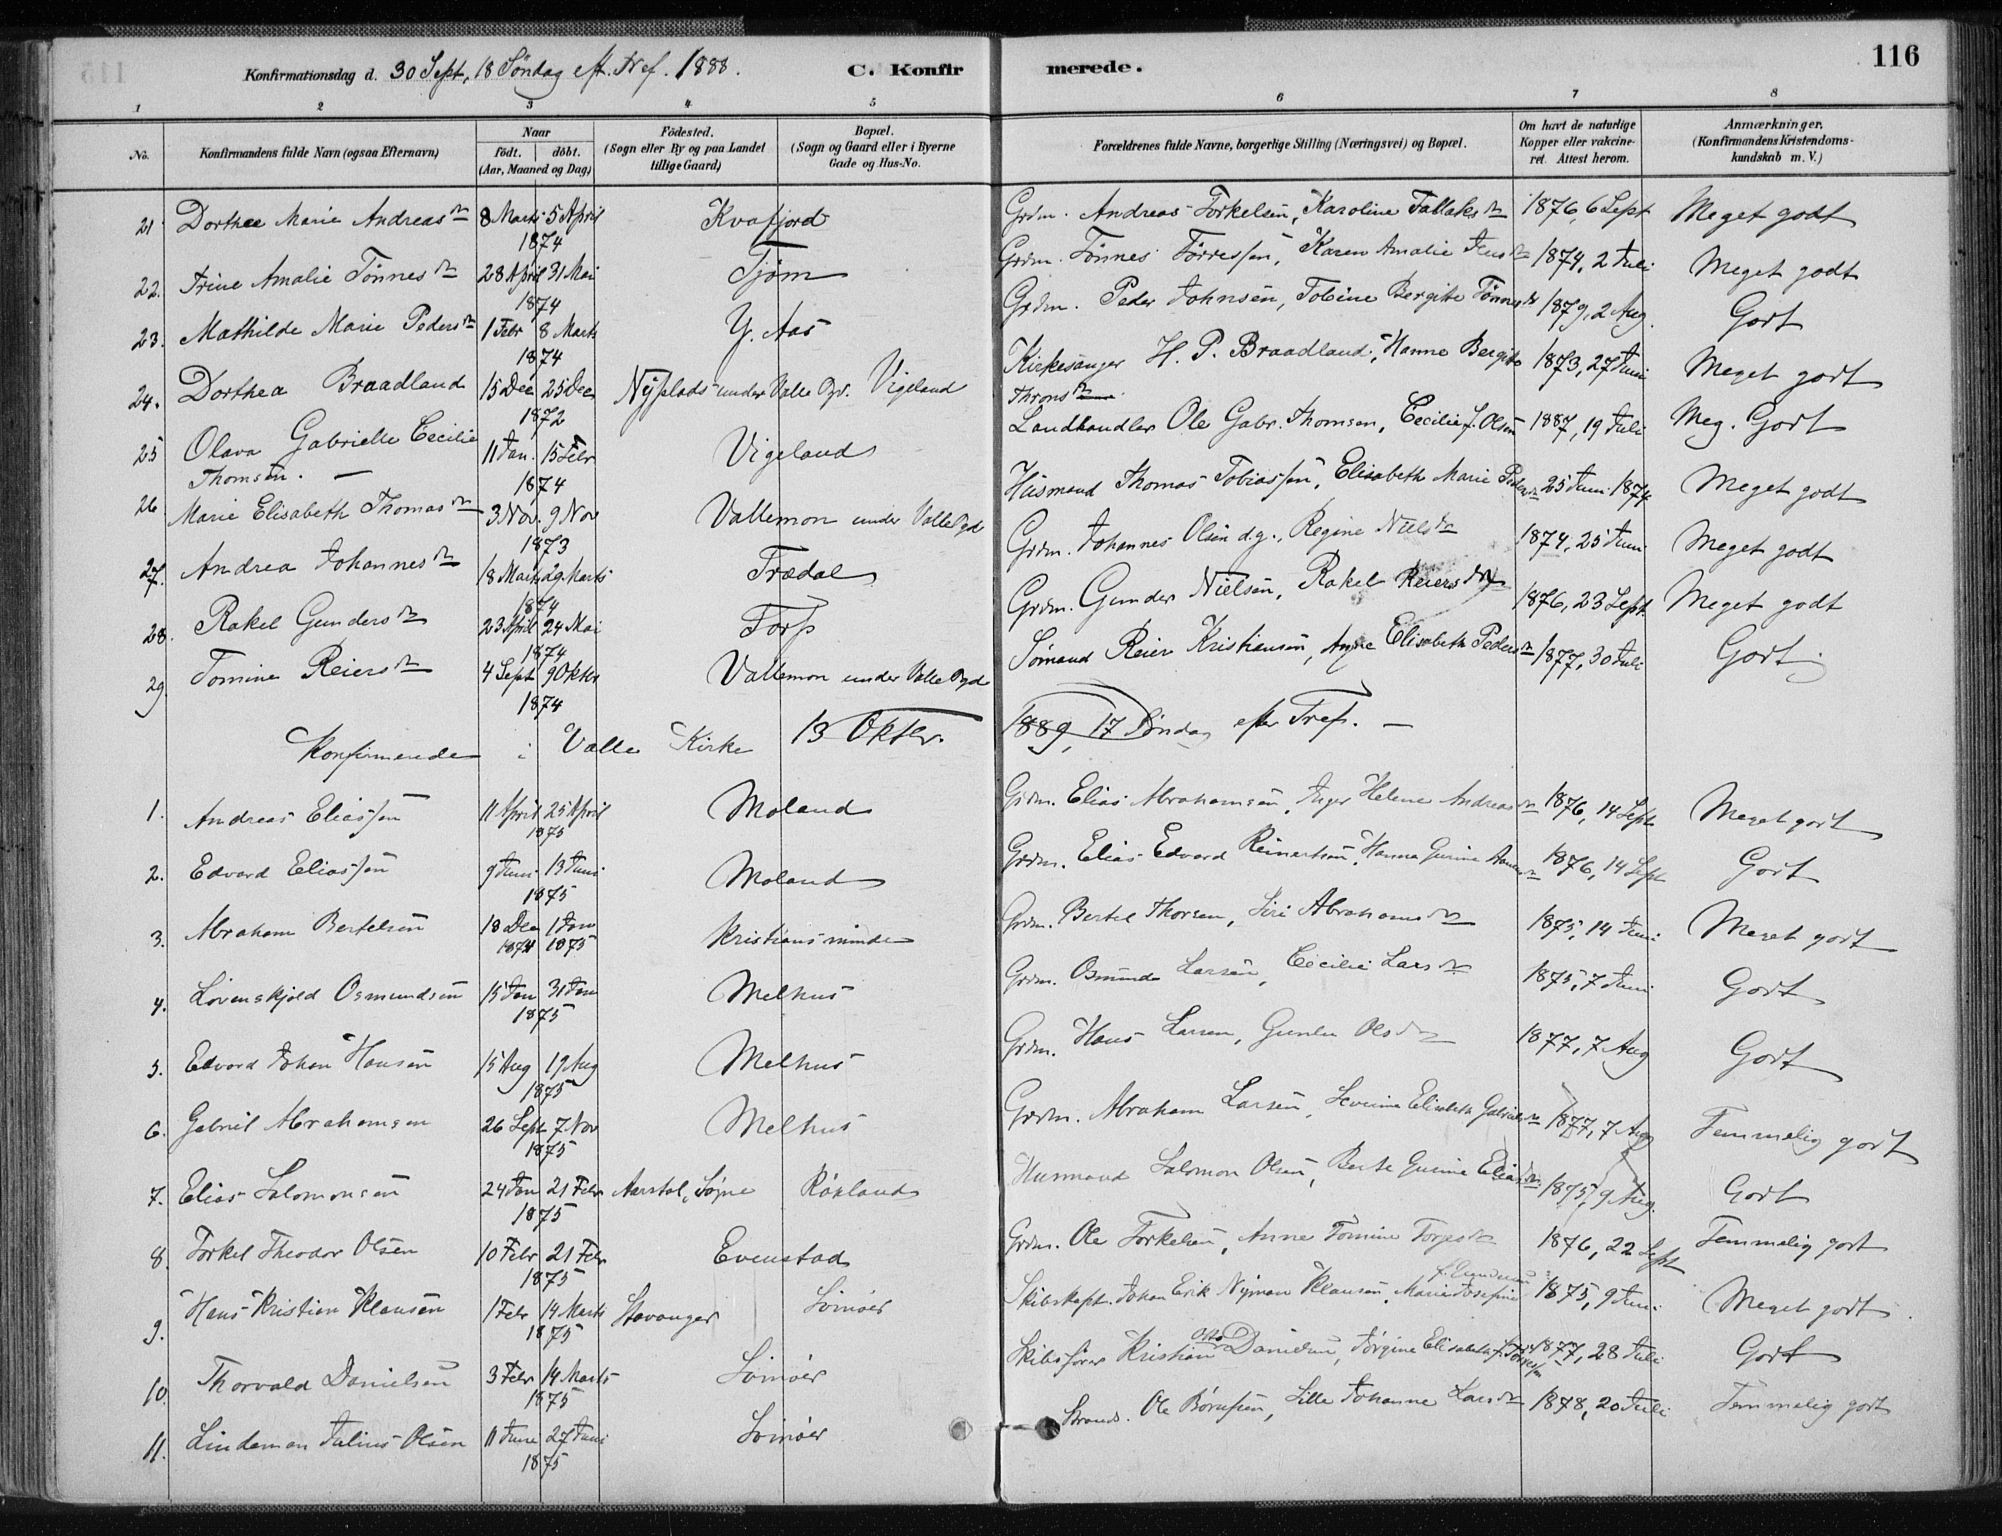 116
Konfirmationsdag d. 30 Sept, 18 Søndag eft. Tref. 1888. C. Konfirmerede.
1 2 3 4 5 6 7 8
No. Konfirmandens fulde Navn (ogsaa Efternavn) Naar født. døbt. (Aar, Maaned og Dag) Fødested. (Sogn eller By og paa Landet tillige Gaard) Bopæl. (Sogn og Gaard eller i Byerne Gade og Hus-No. Forældrenes fulde Navne, borgerlige Stilling (Næringsvei) og Bopæl. Om havt de naturlige Kopper eller vakcineret. Attest herom. Anmærkninger. (Konfirmandens Kristendomskundskab m. V.)
21 Dorthea Marie Andreasdn 8 Marts 5 April 1874 Kvafjord Grdm. Andreas Torkelsen, Karoline Tallaksdn 1876, 6 Sept Meget godt
22. Trine Amalie Tönnesdn 28 April 31 Mai 1874 Tjøm Grdm. Tönnes Törressen, Karen Amalie Jensdn 1874, 2 Juli Meget godt
23. Mathilde Marie Pedersdn 1 Febr 8 Marts 1874 Y. Aas Grdm. Peder Johnsen, Tobine Bergite Tönnesdn 1879, 2 Aug. Godt
24. Dorthea Braadland 15 Dec 25 Dec 1872 Nyplads under Valle Pgd. Vigeland Kirkesanger H. P. Braadland, Hanne Bergite Thronsdn 1873, 27 Juni Meget godt
25 Olava Gabrielle Cecilie Thomsen. 11 Jan. 15 Febr 1874 Vigeland Landhandler Ole Gabr. Thomsen, Cecilie f. Olsen 1887, 19 Juli Meg. Godt
26 Marie Elisabeth Thomasdn 3 Nov. 9 Nov 1873 Vallemon under Valle Pgd Husmand Thomas Tobiassen, Elisabeth Marie Pedersdn 25 Juni 1874 Meget godt
27. Andrea Johannesdn 18 Marts 29 Marts 1874 Trædal Grdm. Johannes Olsen d.y., Regine Nielsdn 1874, 25 Juni Meget godt
28. Rakel Gundersdn 23 April 24 Mai 1874 Torp Grdm. Gunder Nielsen, Rakel Reiersdn 1876, 23 Sept. Meget godt
29 Tomine Reiersdn 4 Sept 9 Oktbr 1874 Vallemon under Valle Pgd Sømand Reier Kristiansen, Anne Elisabeth Pedersdn 1877, 30 Juli Godt
Konfirmerede i Valle Kirke 13 Oktbr. 1889, 17 Søndag efter Tref. —
1. Andreas Eliassen 11 April 25 April 1875 Moland Grdm. Elias Abrahamsen, Inger Helene Andreasdn 1876, 14 Sept Meget godt
2. Edvard Eliassen 9 Juni 13 Juni 1875 Moland Grdm. Elias Edvard Reinertsen, Hanna Gurine 1876, 14 Sept Godt
3. Abraham Bertelsen 18 Dec 1874 1 Jan 1875 Kristiansminde Grdm. Bertel Thorsen, Siri Abrahamsdn 1875, 14 Juni Meget godt
4. Løvenskjold Osmundsen 15 Jan 31 Jan 1875 Melhus Grdm. Osmund Larsen, Cecilie Larsdn 1875, 7 Juni Godt
5. Edvard Johan Hansen 15 Aug 19 Aug 1875 Melhus Grdm. Hans Larsen, Gunild Olsdn 1877, 7 Aug Godt
6. Gabriel Abrahamsen 26 Sept 7 Nov 1875 Melhus Grdm. Abraham Larsen, Severine Elisabeth Gabrielsdn 1877, 7 Aug Temmelig godt
7. Elias Salomonsen 24 Jan 21 Febr 1875 Aarstol, Søgne Røkland Husmand Salomon Olsen, Berte Gurine Eliasdn 1875, 9 Aug. Godt
8. Torkel Theodor Olsen 10 Febr 21 Febr 1875 Evenstad Grdm. Ole Torkelsen, Anne Tomine Torjesdn 1876, 22 Sept Temmelig godt
9. Hans Kristian Klausen 1 Febr 14 Marts 1875 Stavanger Svinøer Skibskapt. Johan Erik Nyman Klausen, Marie Josefine f. Gundersen 1875, 9 Juni Meget godt
10. Thorvald Danielsen 3 Febr 14 Marts 1875 Svinøer Skibsfører Kristian Otto Danielsen, Jørgine Elisabeth f. Torgersen 1877, 28 Juli Godt
11. Lindeman Julius Olsen 11 Juni 27 Juni 1875 Svinøer Strands. Ole Børufsen, Lille Johanne Larsdn 1878, 20 Juli Temmelig godt